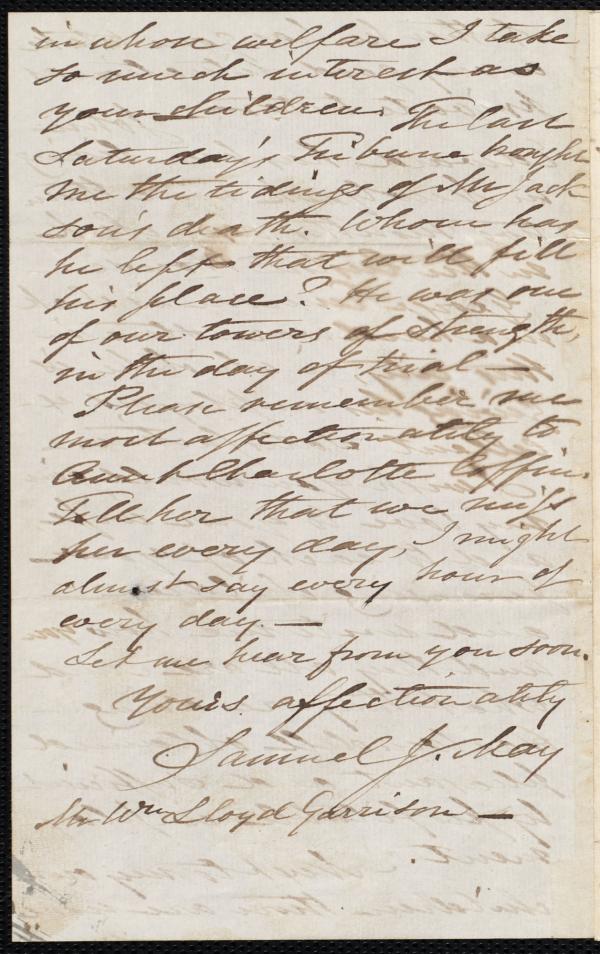 in whose welfare I take
so much interest as
your children. The last
Saturday's Tribune brought
me the tidings of Mr Jack
son's death. Whom has
he left that will fill
his place? He was one
of our towers of strength,
in the day of trial —
Please remember me
most affectionately to
Aunt Charlotte Coffin.
Tell her that we miss
her every day, I might
almost say every hour of
every day. —
Let me hear from you soon.
Yours affectionately
Samuel J. May
Mr Wm Lloyd Garrison —